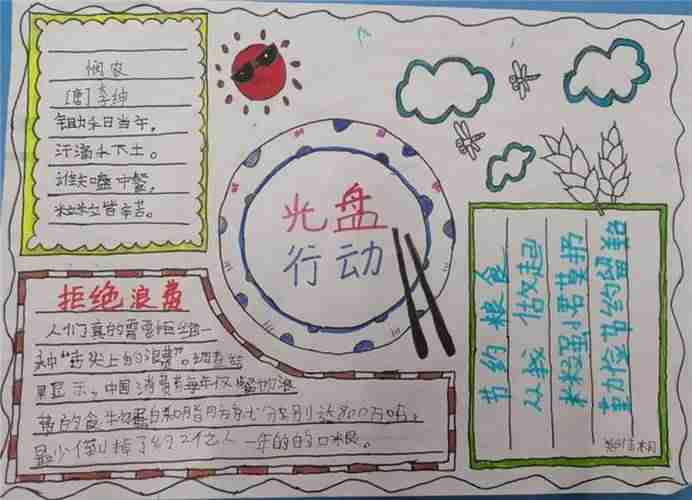 悯农
[唐]李绅
锄禾日当午，
汗滴禾下土。
谁知盘中餐，
粒粒皆辛苦。
光盘
行动
节约粮食
从我做起
米粒虽小君莫扔
勤俭节约留美名
拒绝浪费
人们真的需要拒绝一
种“舌尖上的浪费”。调查结
果显示，中国消费者每年仅餐饮浪
费的食物蛋白和脂肪分别达800万吨，
最少倒掉了约2亿人一年的口粮。